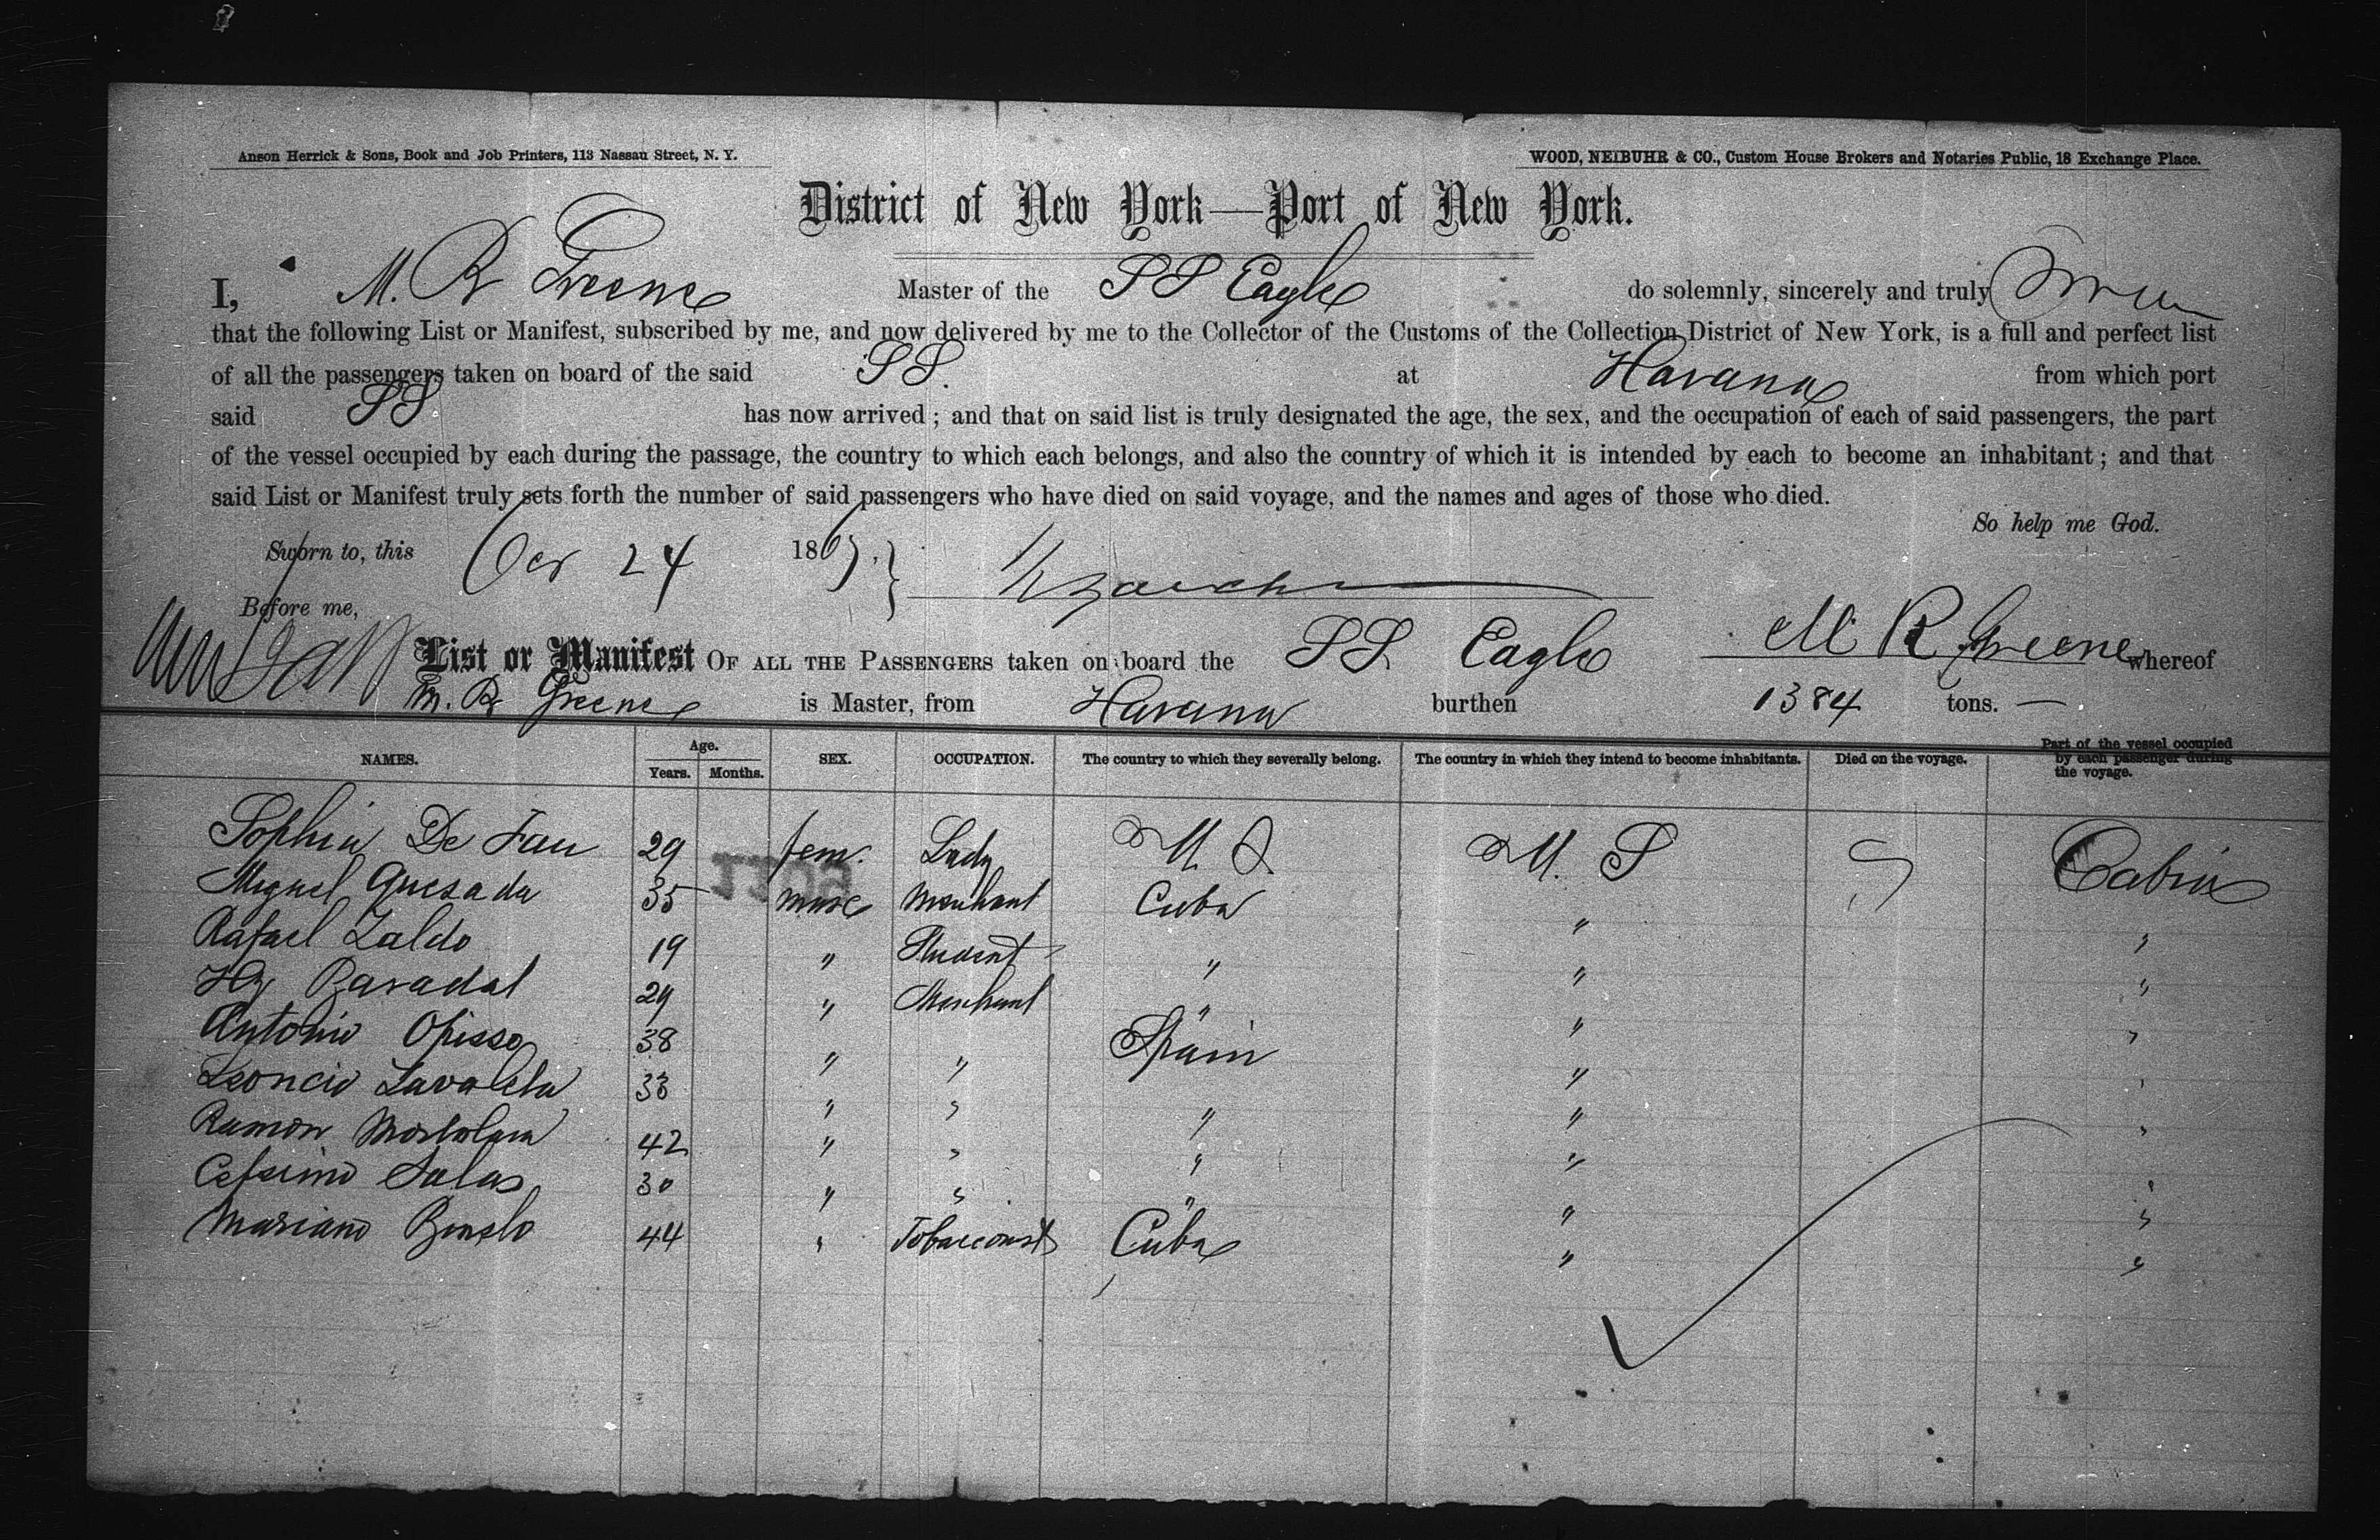 Anson Herrick & Sons, Book and Job Printers, 113 Nassau Street, N. Y.
WOOD, NEIBUHR & CO., Custom House Brokers and Notaries Public, 18 Exchange Place.
District of New York—Port of New York.
I, M. R Greene Master of the SS Eagle do solemnly, sincerely and truly
that the following List or Manifest, subscribed by me, and now delivered by me to the Collector of the Customs of the Collection District of New York, is a full and perfect list
of all the passengers taken on board of the said SS. at Havana from which port
said SS has now arrived; and that on said list is truly designated the age, the sex, and the occupation of each of said passengers, the part
of the vessel occupied by each during the passage, the country to which each belongs, and also the country of which it is intended by each to become an inhabitant; and that
said List or Manifest truly sets forth the number of said passengers who have died on said voyage, and the names and ages of those who died.
So help me God.
Sworn to, this Oct 24 1867.
Before me,
M R Greene
List or Manifest OF ALL THE PASSENGERS taken on board the SS Eagle whereof
M. R Greene is Master, from Havana burthen 1384 tons. —
NAMES. Age. Years. Months. SEX. OCCUPATION. The country to which they severally belong. The country in which they intend to become inhabitants. Died on the voyage. Part of the vessel occupied by each passenger during the voyage.
Sophia De Fau 29 fem. Lady U. S. U. S Cabin
Miguel Quesada 35 masc Merchant Cuba " "
Rafael Zaldo 19 " Student " " "
Hy 29 " Merchant " " "
Antonio Opisso 38 " " Spain " "
Leoncio 33 " " " " "
Ramon 42 " " " " "
Salas 30 " " " " "
Mariano 44 " Tobacconist Cuba " "